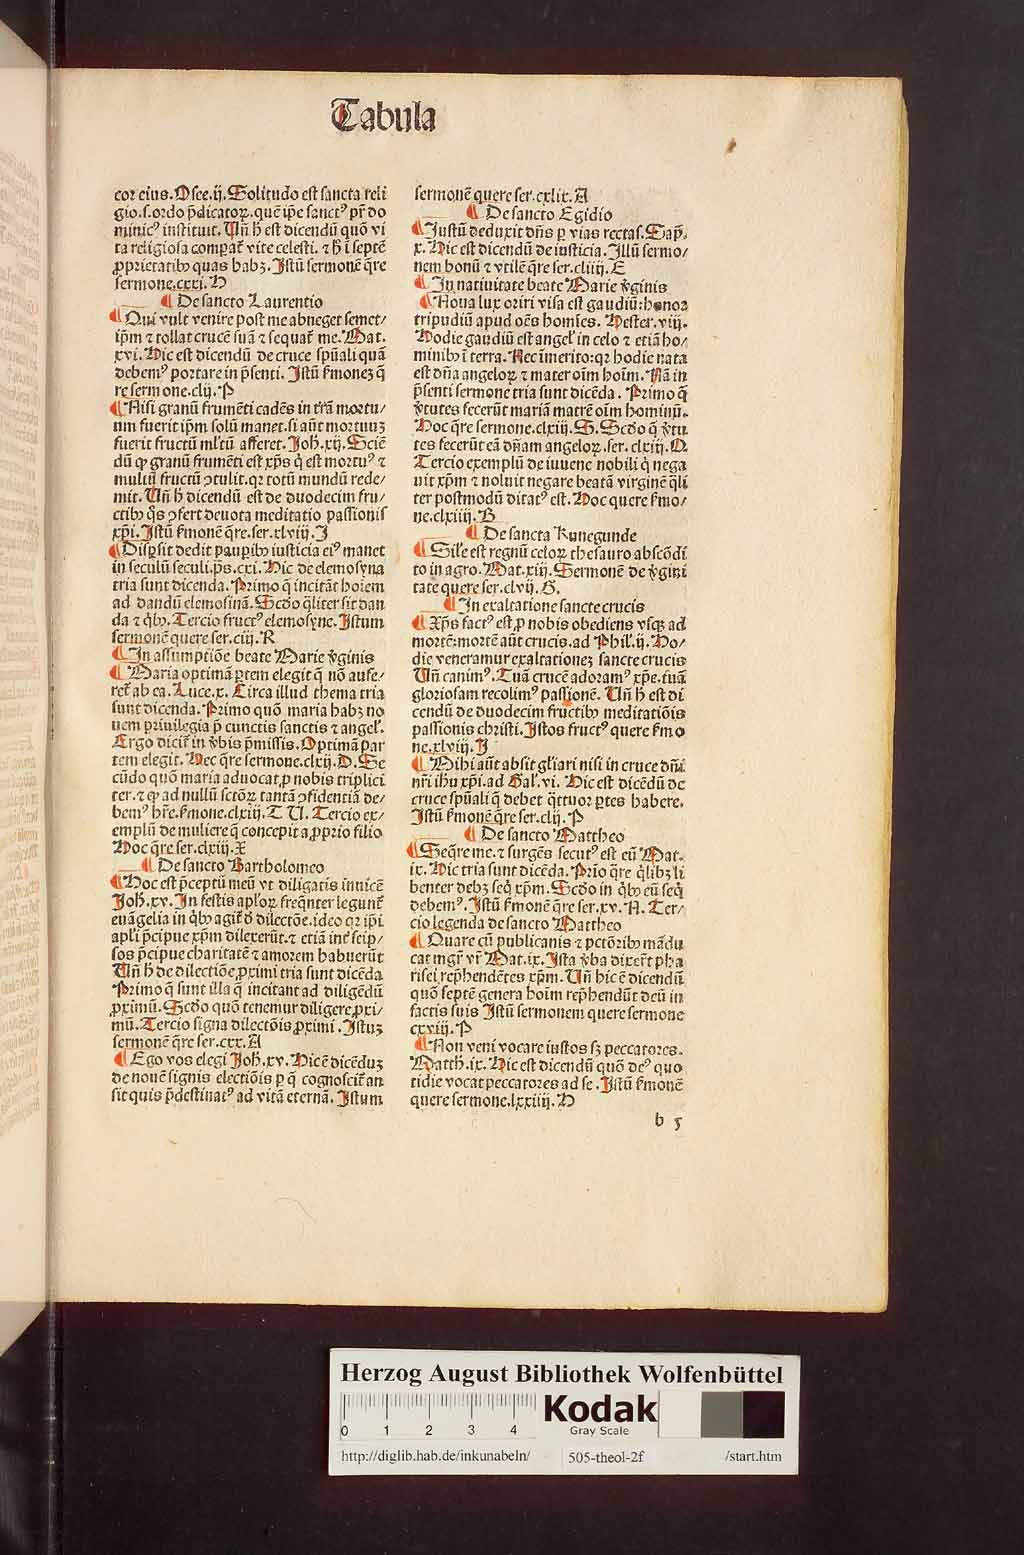 Tabula
cor eius. Osee.ij. Solitudo est sancta reli
gio.s.ordo p̄dicatoꝝ. quē ip̄e sanctꝰ pr̄ do
minicꝰ instituit. Uñ h̄ est dicendū quō vi
ta religiosa comparat̄ vite celesti. ⁊ h̄ ī septē
ꝓprietatibꝫ quas habꝫ. Istū sermonē q̄re
sermone.cxxi. H
¶ De sancto Laurentio
¶ Qui vult venire post me abneget semet/
ip̄m ⁊ tollat crucē suā ⁊ sequat̄ me. Mat.
xvi. Hic est dicendū de cruce spūali quā
debemꝰ portare in p̄senti. Istū ẜmonez q̄
re sermone.clij. P
¶ Nisi granū frumēti cadēs in tr̄ā mortu/
um fuerit ip̄m solū manet. si aūt mortuuꝫ
fuerit fructū ml̓tū afferet. Joh̄.xij. Sciē
dū ꝙ granū frumēti est xp̄s q̄ est mortuꝰ ⁊
multū fructū ꝯtulit. qꝛ totū mundū rede/
mit. Uñ h̄ dicendū est de duodecim fru/
ctibꝫ q̄s ꝯfert deuota meditatio passionis
xp̄i. Istū ẜmonē q̄re.ser.xlviij. J
¶ Disp̄sit dedit paupibꝫ iusticia eiꝰ manet
in seculū seculi.ps̄.cxi. Hic de elemosyna
tria sunt dicenda. Primo q̄ incitāt hoīem
ad dandū elemosinā. Scd̄o q̄liter sit dan
da ⁊ q̄bꝫ. Tercio fructꝰ elemosyne. Istum
sermonē quere ser.ciij. R
¶ In assumptiōe beate Marie ꝟginis
¶ Maria optimā ꝑtem elegit q̄ nō aufe/
ret̄ ab ea. Luce.x. Circa illud thema tria
sunt dicenda. Primo quō maria habꝫ no
uem priuilegia p̄ cunctis sanctis ⁊ angel̓.
Ergo dicit̄ in ꝟbis p̄missis. Optimā par
tem elegit. Hec q̄re sermone.clxij. D. Se
cūdo quō maria aduocat ꝓ nobis triplici
ter. ⁊ ꝙ ad nullū sctōꝝ tantā ꝯfidentiā de/
bemꝰ hr̄e. ẜmone.clxiij. T U. Tercio ex/
emplū de muliere q̄ concepit a ꝓprio filio
Hoc q̄re ser.clxij. X
¶ De sancto Bartholomeo
¶ Hoc est p̄ceptū meū vt diligatis inuicē
Joh̄.xv. In festis apl̓oꝝ freq̄nter legunt̄
euāgelia in q̄bꝫ agit̄ de dilectōe. ideo qꝛ ip̄i
apl̓i p̄cipue xp̄m dilexerūt. ⁊ etiā int̄ seip/
sos p̄cipue charitatē ⁊ amorem habuerūt
Uñ h̄ de dilectiōe ꝓximi tria sunt dicēda
Primo q̄ sunt illa q̄ incitant ad diligēdū
ꝓximū. Scd̄o quō tenemur diligere ꝓxi/
mū. Tercio signa dilectōis ꝓximi. Istuꝫ
sermonē q̄re ser.cxx. A
¶ Ego vos elegi Joh̄.xv. Hic ē dicēduꝫ
de nouē signis electiōis p q̄ cognoscit̄ an
sit quis p̄destinatꝰ ad vitā eternā. Istum
sermonē quere ser.cxlix. A
¶ De sancto Egidio
¶ Justū deduxit dn̄s p vias rectas. Sap̄.
x. Hic est dicendū de iusticia. Illū sermo/
nem bonū ⁊ vtilē q̄re ser.cliiij. E
¶ In natiuitate beate Marie ꝟginis
¶ Noua lux oriri visa est gaudiū: honor
tripudiū apud oēs homīes. Hester.viij.
Hodie gaudiū est angel̓ in celo ⁊ etiā ho/
minibꝫ ī terra. Nec īmerito: qꝛ hodie nata
est dn̄a angeloꝝ ⁊ mater oīm hoīm. Nā in
p̄senti sermone tria sunt dicēda. Primo q̄
ꝟtutes fecerūt mariā matrē oīm hominū.
Hoc q̄re sermone.clxiij. S. Scd̄o q̄ ꝟtu
tes fecerūt eā dn̄am angeloꝝ. ser.clxiij. O.
Tercio exemplū de iuuene nobili q̄ nega
uit xp̄m ⁊ noluit negare beatā virginē q̄li
ter postmodū ditatꝰ est. Hoc quere ẜmo/
ne.clxiiij. B
¶ De sancta Kunegunde
¶ Sil̓e est regnū celoꝝ thesauro abscōdi
to in agro. Mat.xiij. Sermonē de ꝟgini
tate quere ser.clvij. G.
¶ In exaltatione sancte crucis
¶ Xp̄s factꝰ est ꝓ nobis obediens vsqꝫ ad
mortē: mortē aūt crucis. ad Phil̓.ij. Ho/
die veneramur exaltationeꝫ sancte crucis
Uñ canimꝰ. Tuā crucē adoramꝰ xp̄e. tuā
gloriosam recolimꝰ passionē. Uñ h̄ est di
cendū de duodecim fructibꝫ meditatiōis
passionis christi. Istos fructꝰ quere ẜmo
ne.xlviij. J
¶ Mihi aūt absit gl̓iari nisi in cruce dn̄i
nr̄i ihū xp̄i. ad Gal̓.vi. Hic est dicēdū de
cruce spūali q̄ debet q̄ttuor ꝑtes habere.
Istū ẜmonē q̄re ser.clij. P
¶ De sancto Mattheo
¶ Seq̄re me. ⁊ surgēs secutꝰ est eū Mat.
ix. Hic tria sunt dicēda. Prīo q̄re q̄libꝫ li
benter debꝫ seq̄ xp̄m. Scd̄o in q̄bꝫ eū seq̄
debemꝰ. Istū ẜmonē q̄re ser.xv. N. Ter/
cio legenda de sancto Mattheo
¶ Quare cū publicanis ⁊ pctōribꝫ mādu
cat mgr̄ vr̄ Mat.ix. Ista ꝟba dixer̄t pha
risei rep̄hendētes xp̄m. Uñ hic ē dicendū
quō septē genera hoīm rep̄hendūt deū in
factis suis Istū sermonem quere sermone
cxviij. P
¶ Non veni vocare iustos sꝫ peccatores.
Matth̄.ix. Hic est dicendū quō deꝰ quo
tidie vocat peccatores ad se. Istū ẜmonē
quere sermone.lxxiiij. H
b 5
Herzog August Bibliothek Wolfenbüttel
0 1 2 3 4
Kodak
Gray Scale
http://diglib.hab.de/inkunabeln/
505-theol-2f
/start.htm